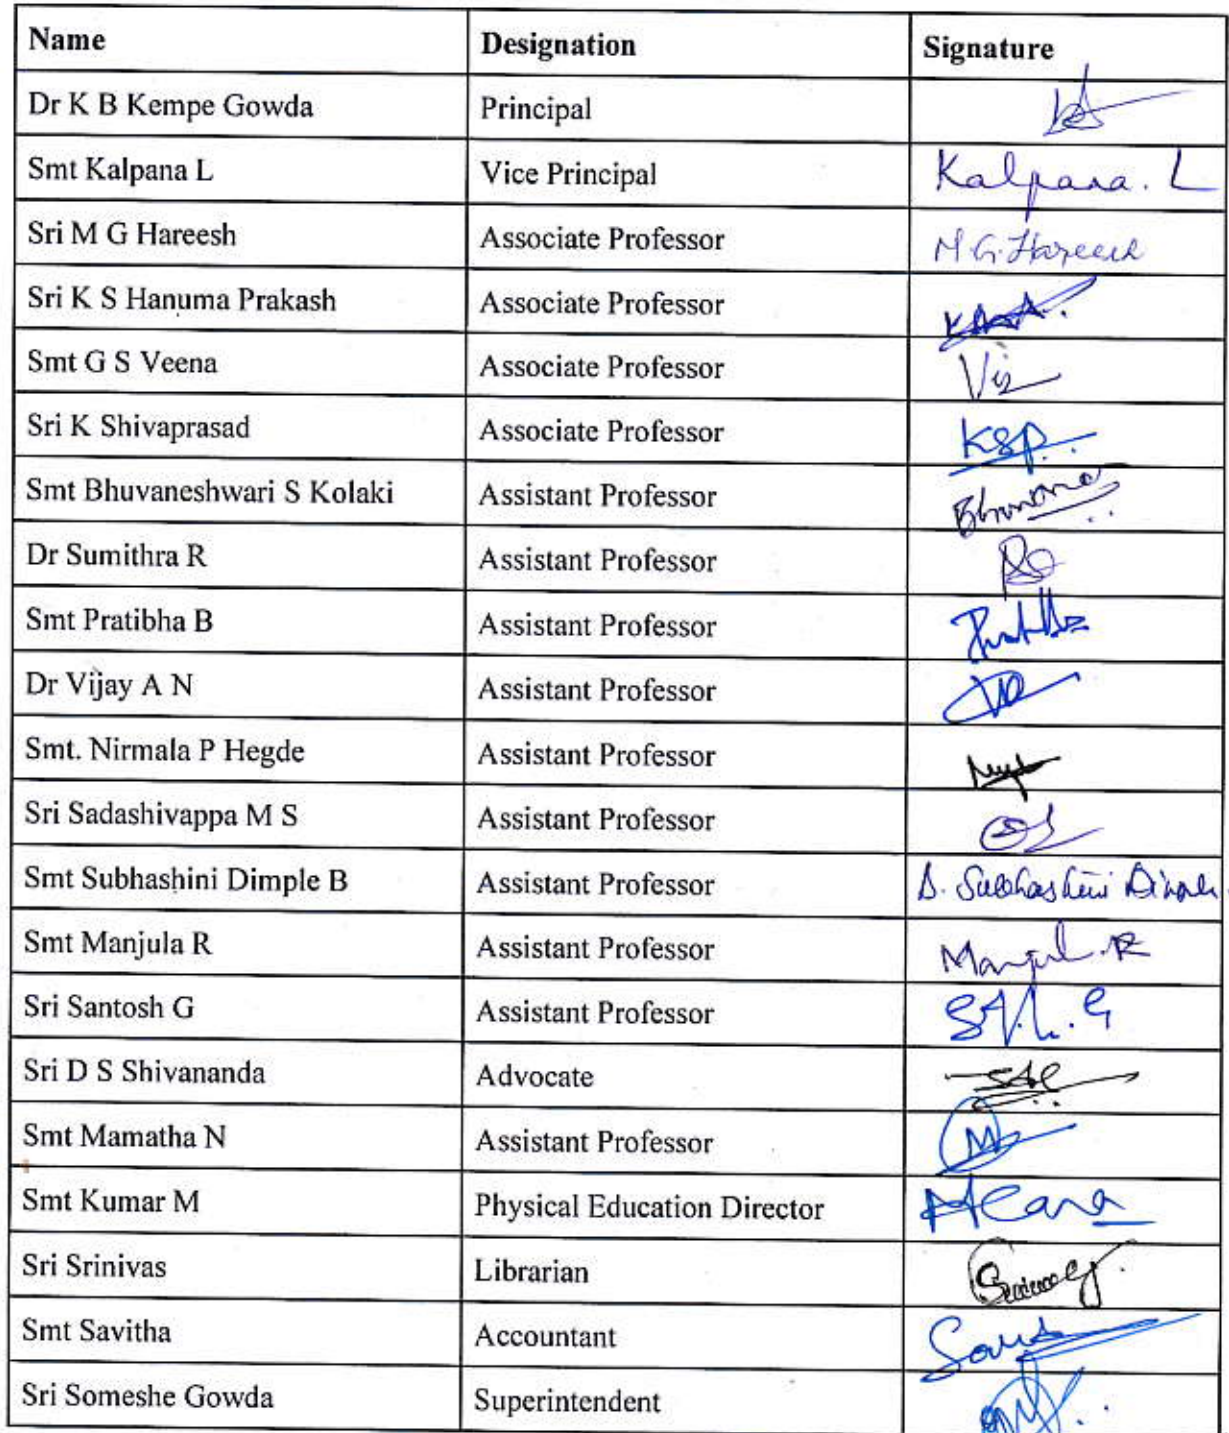 Name Designation Signature
Dr K B Kempe Gowda Principal
Smt Kalpana L Vice Principal Kalpana. L
Sri M G Hareesh Associate Professor M.G.Hareesh
Sri K S Hanuma Prakash Associate Professor
Smt G S Veena Associate Professor
Sri K Shivaprasad Associate Professor KSP.
Smt Bhuvaneshwari S Kolaki Assistant Professor
Dr Sumithra R Assistant Professor
Smt Pratibha B Assistant Professor
Dr Vijay A N Assistant Professor
Smt. Nirmala P Hegde Assistant Professor
Sri Sadashivappa M S Assistant Professor
Smt Subhashini Dimple B Assistant Professor B. Subhashini Dimple
Smt Manjula R Assistant Professor
Sri Santosh G Assistant Professor
Sri D S Shivananda Advocate
Smt Mamatha N Assistant Professor
Smt Kumar M Physical Education Director
Sri Srinivas Librarian
Smt Savitha Accountant
Sri Someshe Gowda Superintendent